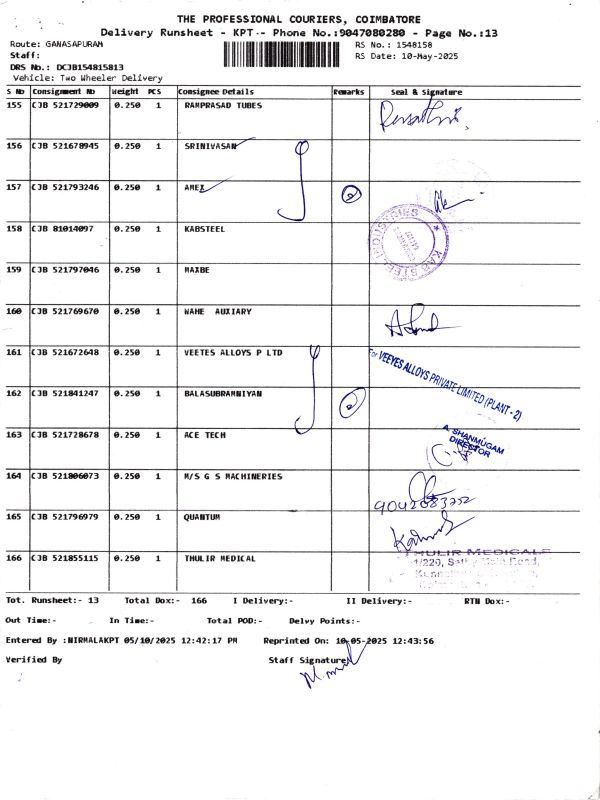 THE PROFESSIONAL COURIERS, COIMBATORE
Delivery Runsheet - KPT -- Phone No.:9047080280 - Page No.:13
Route: GANASAPURAM RS No.: 1548158
Staff: RS Date: 10-May-2025
DRS No.: DCJB154815813
Vehicle: Two Wheeler Delivery
S No Consignment No Weight PCS Consignee Details Remarks Seal & Signature
155 CJB 521729009 0.250 1 RAMPRASAD TUBES
156 CJB 521678945 0.250 1 SRINIVASAN
157 CJB 521793246 0.250 1 AMEX 2
158 CJB 81014097 0.250 1 KABSTEEL KAB STEEL INDUSTRIES
159 CJB 521797046 0.250 1 MAXBE
160 CJB 521769670 0.250 1 WAHE AUXIARY
161 CJB 521672648 0.250 1 VEETES ALLOYS P LTD For VEEYES ALLOYS PRIVATE LIMITED (PLANT - 2)
162 CJB 521841247 0.250 1 BALASUBRAMNIYAN 2
163 CJB 521728678 0.250 1 ACE TECH A. SHANMUGAM
DIRECTOR
164 CJB 521806073 0.250 1 M/S G S MACHINERIES
9042083252
165 CJB 521796979 0.250 1 QUANTUM
166 CJB 521855115 0.250 1 THULIR MEDICAL THULIR MEDICALS
1/220, Sathy Main Road,
Tot. Runsheet:- 13 Total Dox:- 166 I Delivery:- II Delivery:- RTN Dox:-
Out Time:- In Time:- Total POD:- Delvy Points:-
Entered By :NIRMALAKPT 05/10/2025 12:42:17 PM Reprinted On: 10-05-2025 12:43:56
Verified By Staff Signature